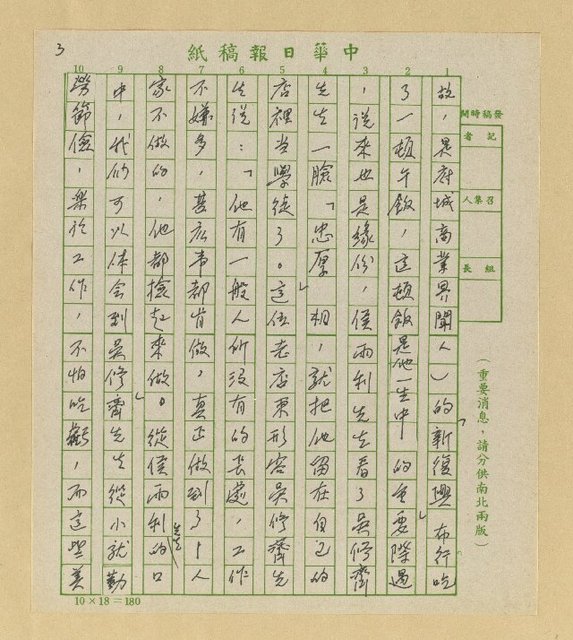 3
中華日報稿紙
發稿時間
記者
召集人
組長
(重要消息,請分供南北兩版)
1 2 3 4 5 6 7 8 9 10
故,是府城商業界聞人)的「新復興」布行吃
了一頓午飯,這頓飯是他一生中的重要際遇
,說來也是緣份,侯雨利先生看了吳修齊
先生一臉「忠厚」相,就把他留在自己的
店裡當學徒了。這位老店東形容吳修齊先
生說:「他有一般人所沒有的長處,工作
不嫌多,甚麼事都肯做,真正做到了『人
家不做的,他都撿起來做。』從侯雨利先生的口
中,我們可以体會到吳修齊先生從小就勤
勞節儉,樂於工作,不怕吃虧,而這些美
10×18=180